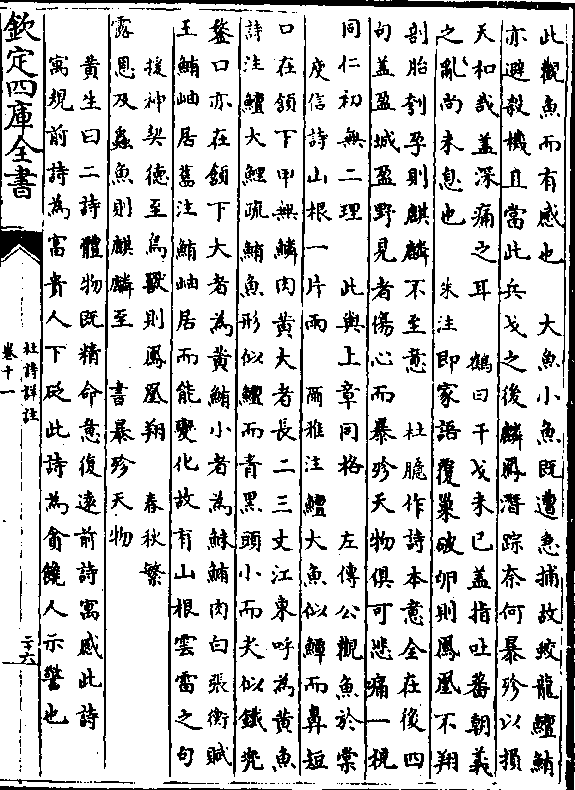 此觀魚而有感也　大魚小魚既遭急捕故蛟龍鱣鮪
亦避殺機且當此兵戈之後麟鳳潛踪奈何暴殄以損
天和哉蓋深痛之耳　鶴曰干戈未已蓋指吐蕃朝義
之亂尚未息也　朱注即家語覆巢破卵則鳳凰不翔
刳胎刳孕則麒麟不至意　杜臆作詩本意全在後四
句蓋盈城盈野見者傷心而暴殄天物俱可悲痛一視
同仁初無二理　此與上章同格　左傳公觀魚於棠
庾信詩山根一片雨　爾雅注鱣大魚似鱏而鼻短
口在頷下甲無鱗肉黃大者長二三丈江東呼為黃魚
詩注鱣大鯉疏鮪魚形似鱣而青黑頭小而尖似鐵兜
鍪口亦在頷下大者為黃鮪小者為鮇鮪肉白張衡賦
王鮪岫居舊注鮪岫居而能變化故有山根雲雷之句
援神契德至鳥獸則鳳凰翔　春秋繁
露恩及蟲魚則麒麟至　書暴殄天物
黃生曰二詩體物既精命意復遠前詩寓感此詩
寓規前詩為富貴人下砭此詩為貪饞人示警也
欽定四庫全書
杜詩詳註
卷十一
二十六